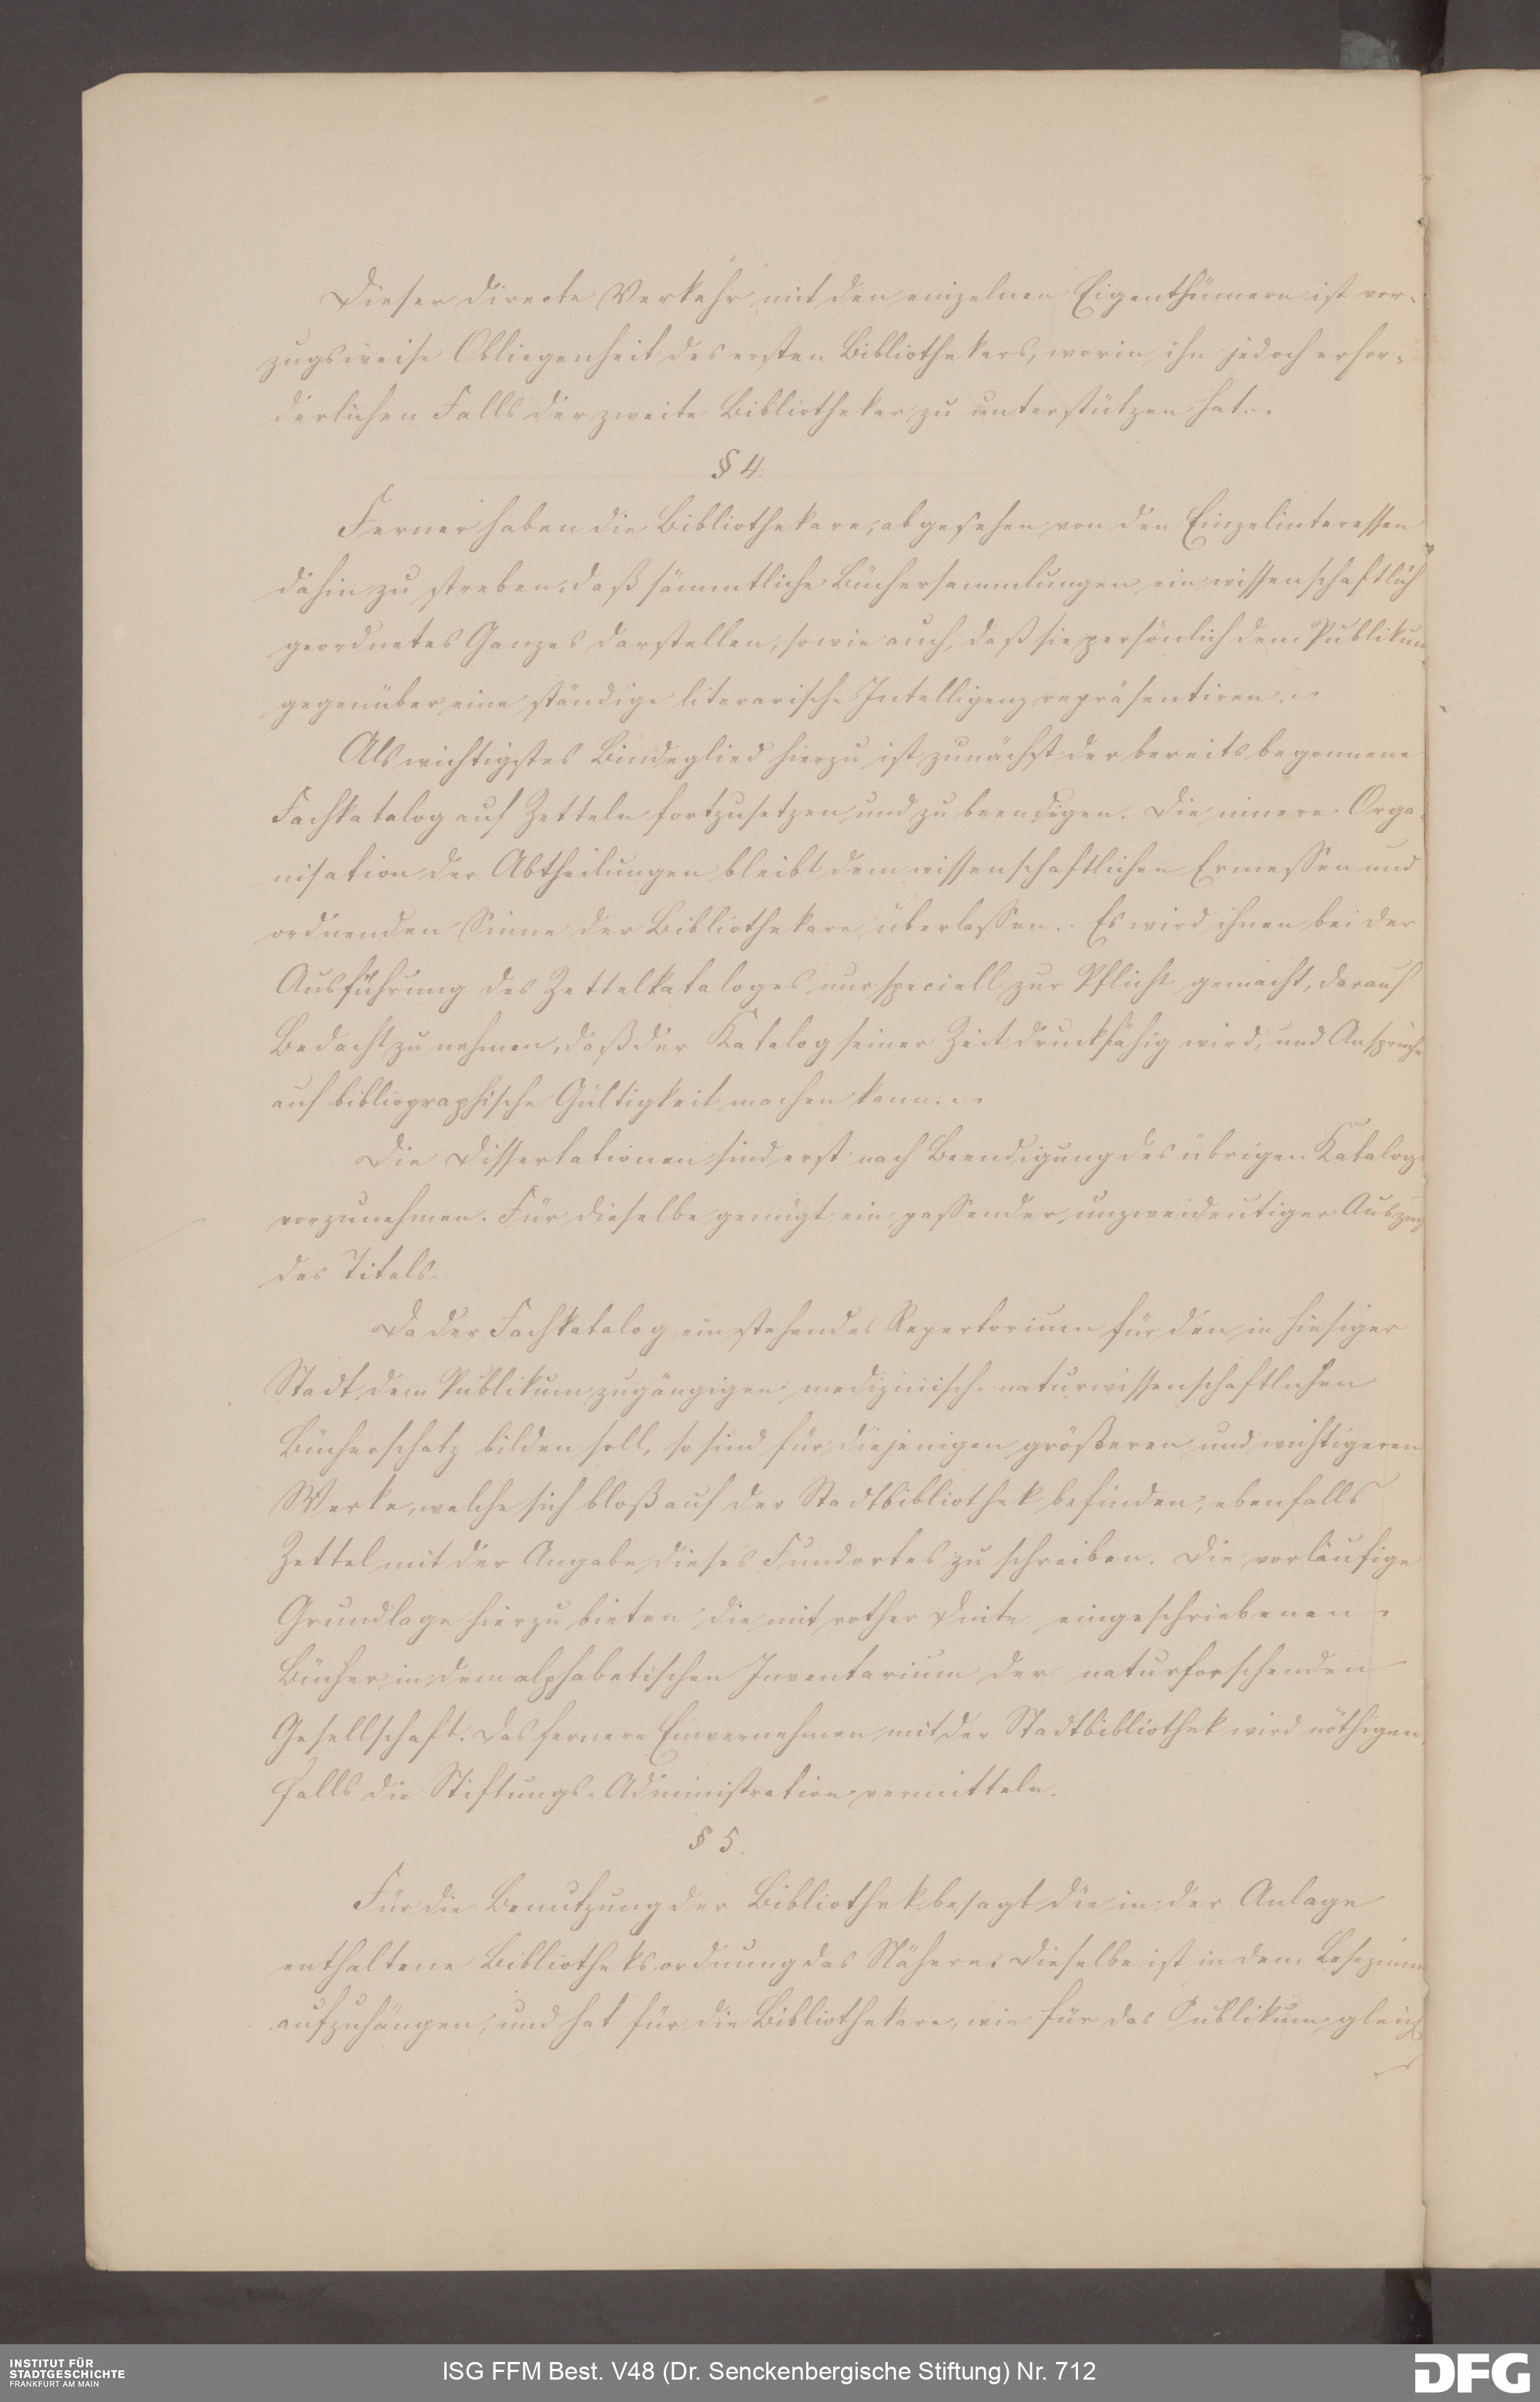 Dieser directe Verkehr mit den einzelnen Eigenthümern ist vor-
zugsweise Obliegenheit des ersten Bibliothekars, worin ihn jedoch erfor-
derlichen Falls der zweite Bibliothekar zu unterstützen hat.
§ 4.
Ferner haben die Bibliothekare, abgesehen von den Einzelinteressen
dahin zu streben, daß sämmtliche Büchersammlungen ein wissenschaftlich
geordnetes Ganzes darstellen, sowie auch, daß sie persönlich dem Publikum
gegenüber eine ständige literarische Intelligenz repräsentiren.
Als wichtigstes Bindeglied hierzu ist zunächst der bereits begonnene
Fachkatalog auf Zetteln fortzusetzen und zu beendigen. Die innere Orga-
nisation der Abtheilungen bleibt dem wissenschaftlichen Ermessen und
ordnenden Sinne der Bibliothekare überlassen. Es wird ihnen bei der
Ausführung des Zettelkataloges nur speciell zur Pflicht gemacht, darauf
Bedacht zu nehmen, daß der Katalog seiner Zeit druckfähig wird, und Ansprüche
auf bibliographische Gültigkeit machen kann.
Die Dissertationen sind erst nach Beendigung des übrigen Katalogs
vorzunehmen. Für dieselbe genügt ein passender, unzweideutiger Auszug
des Titels.
Da der Fachkatalog ein stehendes Repertorium für den in hiesiger
Stadt dem Publikum zugängigen medizinisch-naturwissenschaftlichen
Bücherschatz bilden soll, so sind für diejenigen größeren und wichtigeren
Werke, welche sich bloß auf der Stadtbibliothek befinden, ebenfalls
Zettel mit der Angabe dieses Fundortes zu schreiben. Die vorläufige
Grundlage hierzu bieten die mit rother Dinte eingeschriebenen
Bücher in dem alphabetischen Inventarium der naturforschenden
Gesellschaft. Das fernere Einvernehmen mit der Stadtbibliothek wird nöthigen-
falls die Stiftungs-Administration vermitteln.
§ 5.
Für die Benutzung der Bibliothek besagt die in der Anlage
enthaltene Bibliotheksordnung das Nähere; dieselbe ist in dem Lesezimmer
aufzuhängen, und hat für die Bibliothekare, wie für das Publikum gleich
INSTITUT FÜR
STADTGESCHICHTE
FRANKFURT AM MAIN
ISG FFM Best. V48 (Dr. Senckenbergische Stiftung) Nr. 712
DFG